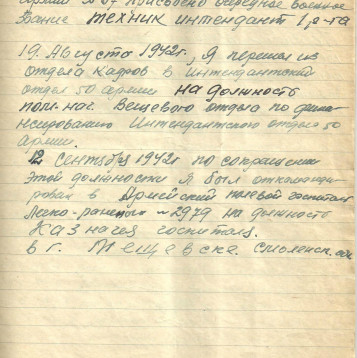 армии № 07 присвоено очередное военное
звание техник интендант 1, р-га
19. Августа 1942г, Я перешел из
отдела кадров в Интендантский
отдел 50 армии на должность
пом. нач. Вещевого отдела по фина-
нсированию Интендантского отдела 50
Армии.
12 Сентября 1942г по сокращении
этой должности Я был откоманди-
рован в Армейский полевой госпиталь
Легко-раненых № 2979 на должность
Казначея госпиталя.
в г. Мещевске. Смоленск. обл